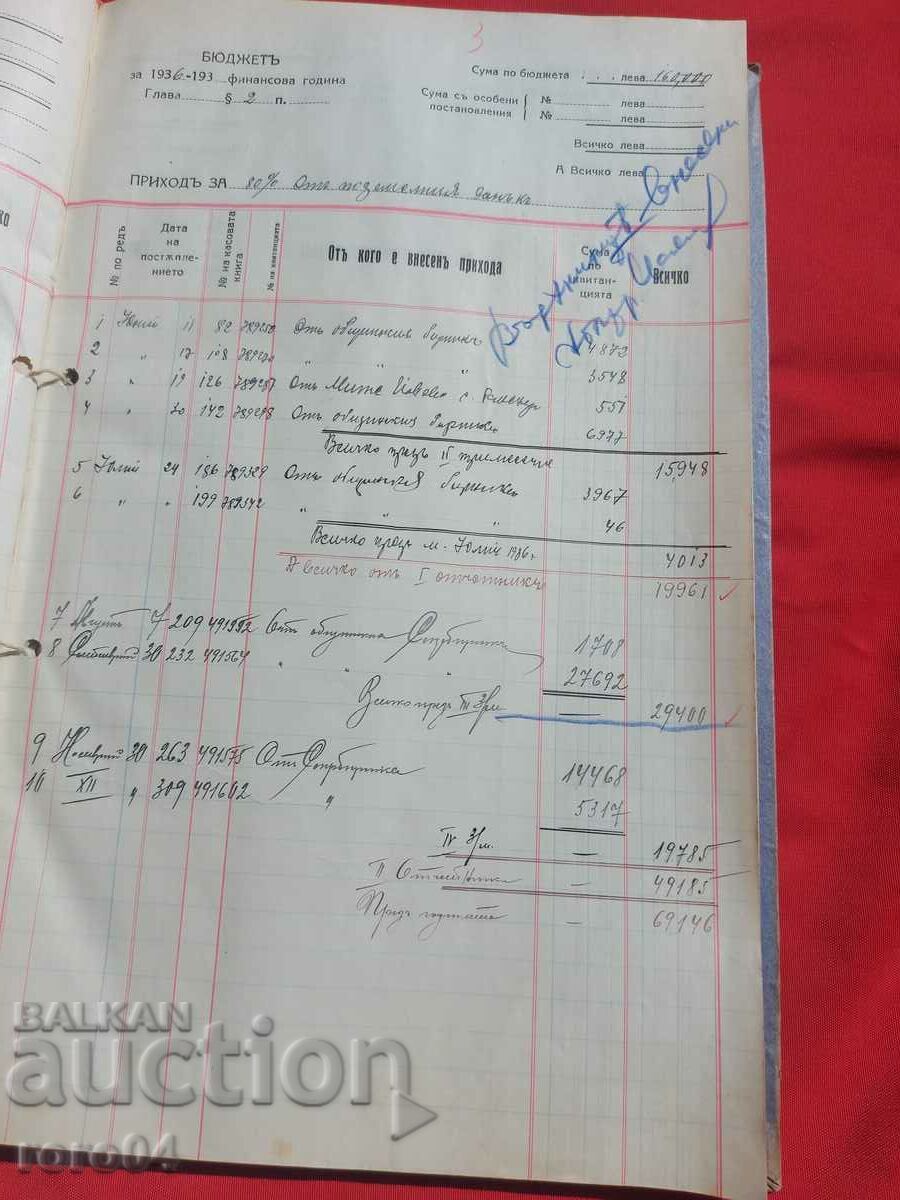 3
БЮДЖЕТЪ
за 1936-193 финансова година
Глава § 2 п.
Сума по бюджета . . . лева 160,000
Сума съ особени постановления { № лева
№ лева
Всичко лева
А Всичко лева
ПРИХОДЪ ЗА 80% Отъ поземелния данъкъ
№ по редъ | Дата на постѫплението | № на касовата книга | № на квитанцията | Отъ кого е внесенъ прихода | Сума по квитанцията | Всичко
1 Юний 11 82 789250 Отъ общинския бирникъ 4872
2 " 17 108 " " 3548
3 " 19 126 789287 Отъ 551
4 " 30 142 789298 Отъ общинския бирникъ 6977
Всичко презъ II тримесечие 15,948
5 Юлий 24 186 789329 Отъ общинския бирникъ 3967
6 " " 199 789342 " " " 46
Всичко презъ м. Юлий 1936 г. 4013
А всичко отъ I 19961
7 Августъ 7 209 491552 Отъ 1708
8 30 232 491564 " " 27692
Всичко презъ III 3/м. — 29400
9 Ноемврий 30 263 491575 Отъ 14468
10 XII " 309 491602 " 5317
IV 3/м. — 19785
II — 49185
Презъ годината — 69146
BALKAN
auction
roro04